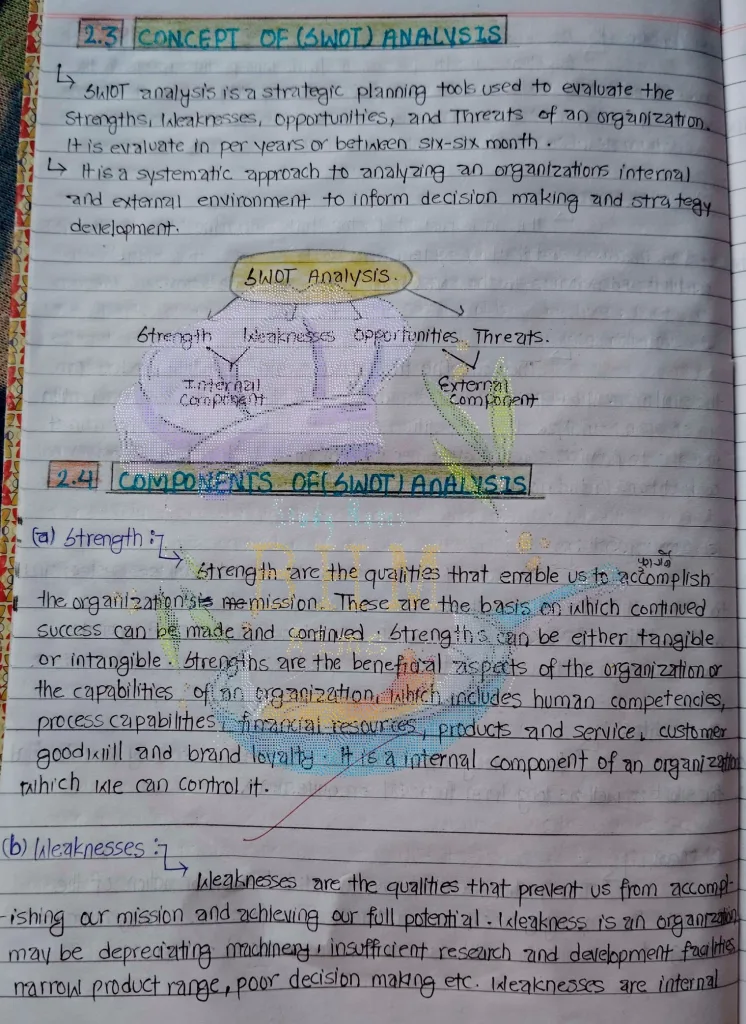 2.3 CONCEPT OF (SWOT) ANALYSIS
↳ SWOT analysis is a strategic planning tools used to evaluate the
Strengths, Weaknesses, Opportunities, and Threats of an organization.
It is evaluate in per years or between six-six month.
↳ It is a systematic approach to analyzing an organizations internal
and external environment to inform decision making and strategy
development.
SWOT Analysis.
Strength Weaknesses Opportunities Threats.
Internal External
Component Component
2.4 COMPONENTS OF (SWOT) ANALYSIS
Study Notes
(a) Strength :
BHM
Strength are the qualities that enable us to accomplish
the organization's mission. These are the basis on which continued
success can be made and continued. Strengths can be either tangible
or intangible. Strengths are the beneficial aspects of the organization or
the capabilities of an organization, which includes human competencies,
process capabilities, financial resources, products and service, customer
goodwill and brand loyalty. It is a internal component of an organization
which we can control it.
(b) Weaknesses :
Weaknesses are the qualities that prevent us from accompl-
-ishing our mission and achieving our full potential. Weakness is an organization
may be depreciating machinery, insufficient research and development facilities
narrow product range, poor decision making etc. Weaknesses are internal